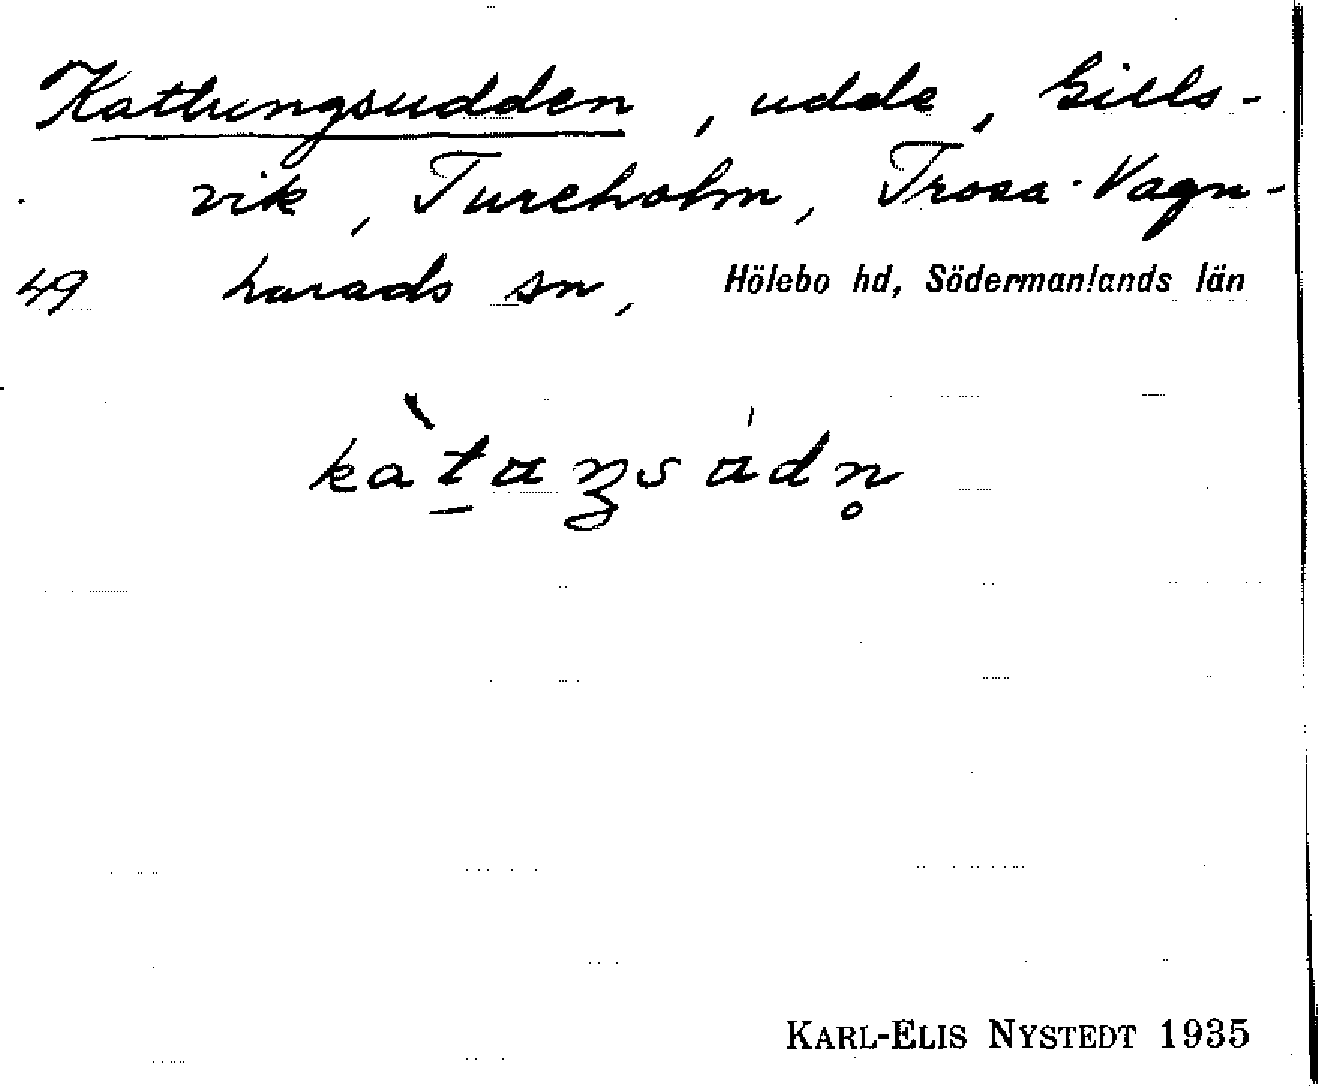 Kattungsudden, udde, Gills-
vik, Tureholm, Trosa-Vagn-
49 harads sn, Hölebo hd, Södermanlands län
KARL-ELIS NYSTEDT 1935